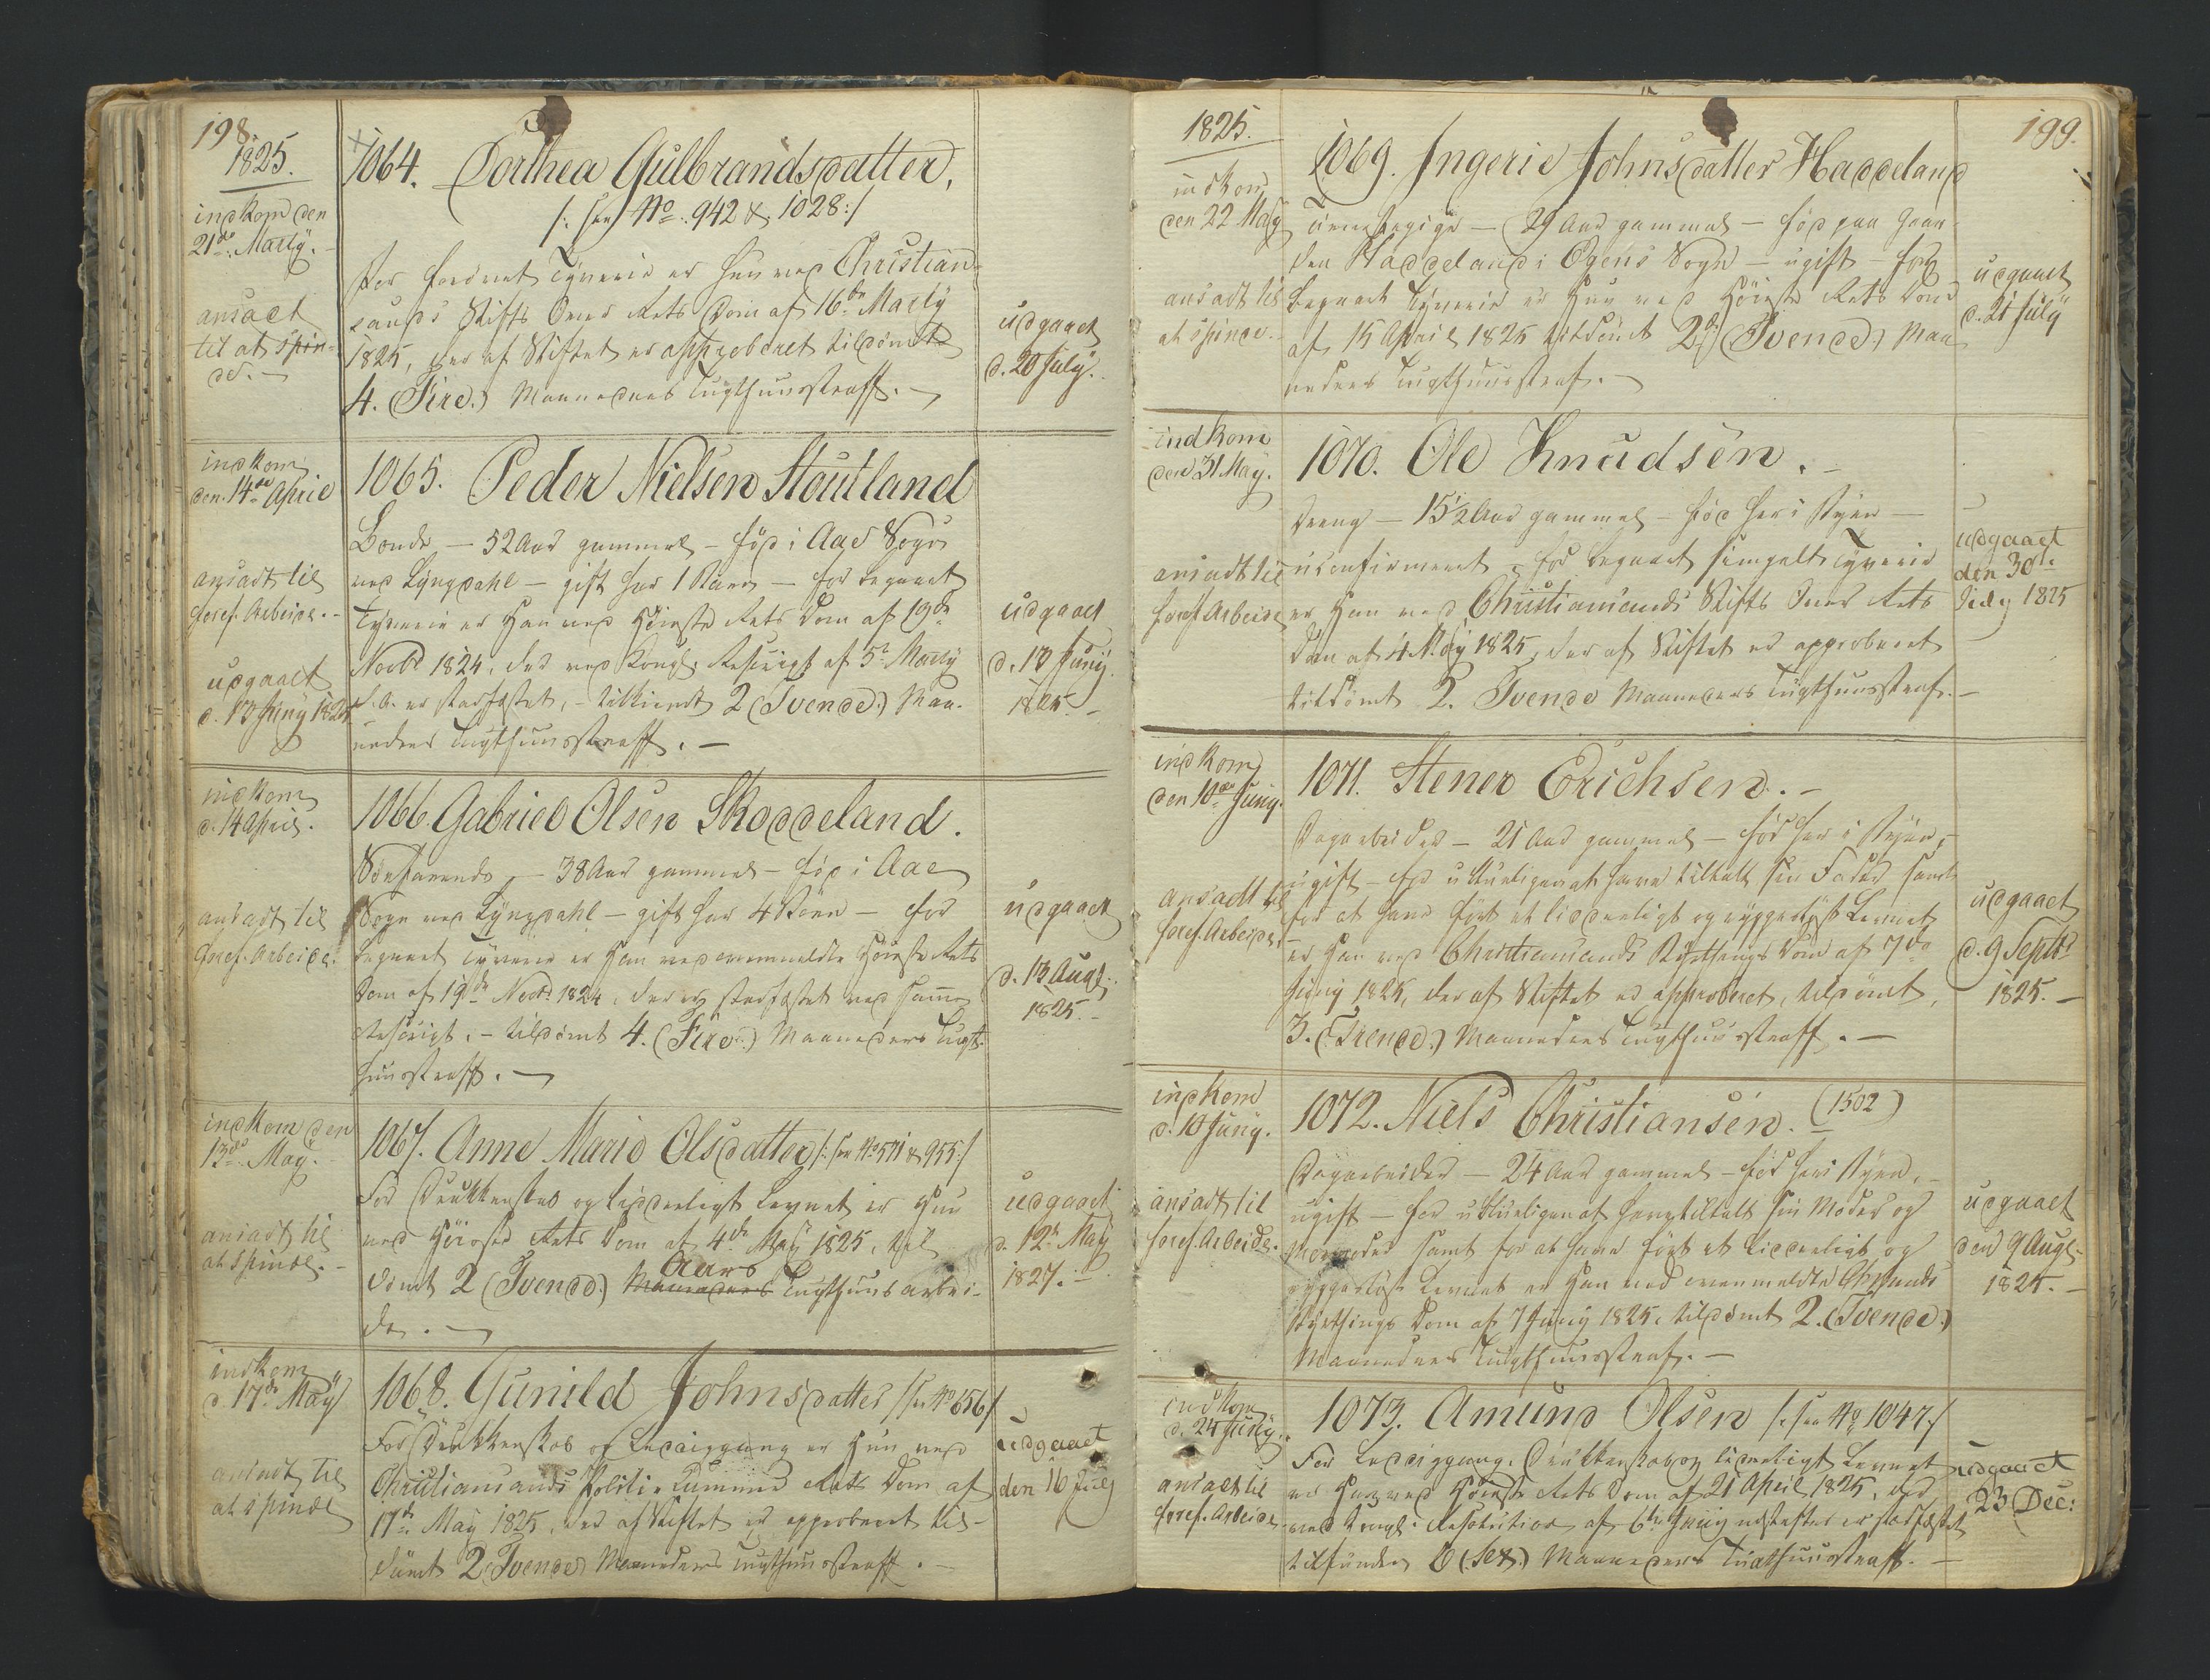 198.
1825.
indkom den
21de Marty.
ansaet
til at spin-
de.
1064. Dorthea Gulbrandsdatter,
/: see No. 942 & 1028:/
For fordret Tyverie er hun ved Christian-
sands Stifts Over Rets Dom af 16de Marty
1825, der af Stiftet er approberet tildømt
4. (Fire.) Maaneders Tugthuusstraff.
udgaaet
d. 20 July.
indkom
den 14de April
ansadt til
foref. Arbeide.
udgaaet
d. 13 Juny 1825
1065. Peder Nielsen Stoutland
Bonde – 52 Aar gammel – fød i Aae Sogn
ved Lyngdahl – gift har 1 Barn – for begaaet
Tyverie er han ved Høieste Rets Dom af 19de
Novbr 1824, der ved Kongl. Rescript af 5te Marty
d. A. er stadfæstet, – tilkiendt 2 (Tvende.) Maa-
neders Tugthuusstraff. –
udgaaet
d. 13 Juny
1825. –
indkom
d. 14 April.
ansadt til
foref. Arbeide.
1066. Gabriel Olsen Skoddeland.
Søefarende – 38 Aar gammel – fød i Aae
Sogn ved Lyngdahl – gift har 4 Børn – for
begaaet Tyverie er han ved ovenmeldte Høieste Rets
Dom af 19de Novbr 1824, der er stadfæstet ved samme
Rescript, – tildømt 4. (Fire.) Maaneders Tugt-
huusstraff. –
udgaaet
d. 13 Aug.
1825. –
indkom den
13de May.
ansadt til
at spinde. –
1067. Anne Marie Olsdatter /: see No 571 & 955:/
For Drukkenskab og liderligt Levnet er hun
ved Høieste Rets Dom af 4de May 1825, til
dømt 2 (Tvende.) Maaneders Aars Tugthuusarbei-
de. –
udgaaet
d. 12te May
1827. –
indkom
d. 17de May
ansadt til
at spinde
1068. Gunild Johnsdatter /: see No 656:/
For Drukkenskab og Lediggang er hun ved
Christiansands Politie Kammer Rets Dom af
17de May 1825, der af Stiftet er approberet til-
dømt 2 (Tvende) Maaneders Tugthuusstraff. –
udgaaet
den 16 July
199.
1825.
indkom
den 22 May
ansadt til
at spinde. –
1069. Ingerie Johnsdatter Haddeland
Tienestepige – 29 Aar gammel – fød paa Gaar-
den Haddeland i Øyens Sogn – ugift – for
begaaet Tyverie er hun ved Høieste Rets Dom
af 15 April 1825 tildømt 2 (Tvende.) Maa
neders Tugthuusstraf. –
udgaaet
d. 21 July
indkom
den 31 May.
ansadt til
foref. Arbeide
1070. Ole Knudsen. –
Dreng – 15½ Aar gammel – fød her i Byen –
uconfirmeret – for begaaet simpelt Tyverie
er han ved Christiansands Stifts Over Rets
Dom af 4 May 1825, der af Stiftet er approberet
tildømt 2. Tvende Maaneders Tugthuusstraf. –
udgaaet
den 30te
July 1825
indkom
den 10de Juny.
ansadt til
foref. Arbeide.
1071. Stener Erichsen. –
Dagarbeider – 21 Aar gammel – fød her i Byen, –
ugift – for utilbørligen at have tiltalt sin Fader samt
for at have ført et liderligt og ryggesløst Levnet
er han ved Christiansands Byethings Dom af 7de
Juny 1825, der af Stiftet er approberet, tildømt,
3. (Trende.) Maaneders Tugthuusstraff. –
udgaaet
d. 9 Septbr
1825. –
indkom
d. 10 Juny.
ansadt til
foref. Arbeide.
1072. Niels Christiansen. (1502)
Dagarbeider – 24 Aar gammel – fød her i Byen, –
ugift – for utilbørligen at have tiltalt sin Moder og
samt for at have ført et liderligt og
ryggesløst Levnet er han ved ovenmeldte Chrsands
Byethings Dom af 7 Juny 1825, tildømt 2. (Tvende.)
Maaneders Tugthuusstraf. –
udgaaet
den 9 Augt.
1825. –
indkom
d. 24 Juny.
ansaet til
foref. Arbeide
1073. Amund Olsen /: see No 1047:/
For Lediggang, Drukkenskab og liderligt Levnet
er han ved Høieste Rets Dom af 21 April 1825, der
ved Kongl. Resolution af 6te Juny næstefter er stadfæstet
tilfunden 6 (Sex.) Maaneders Tugthuusstraff. –
udgaaet
23 Dec: